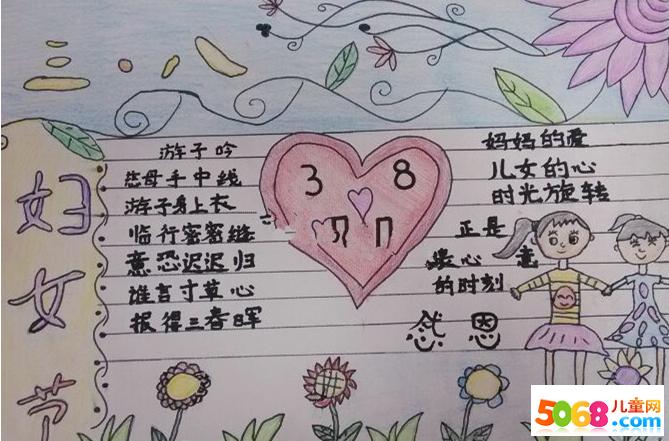 三·八
妇女节
游子吟
慈母手中线
游子身上衣
临行密密缝
意恐迟迟归
谁言寸草心
报得三春晖
3 8
妈妈的爱
儿女的心
时光旋转
正是
心意
的时刻
感恩
5068儿童网
www.5068.com